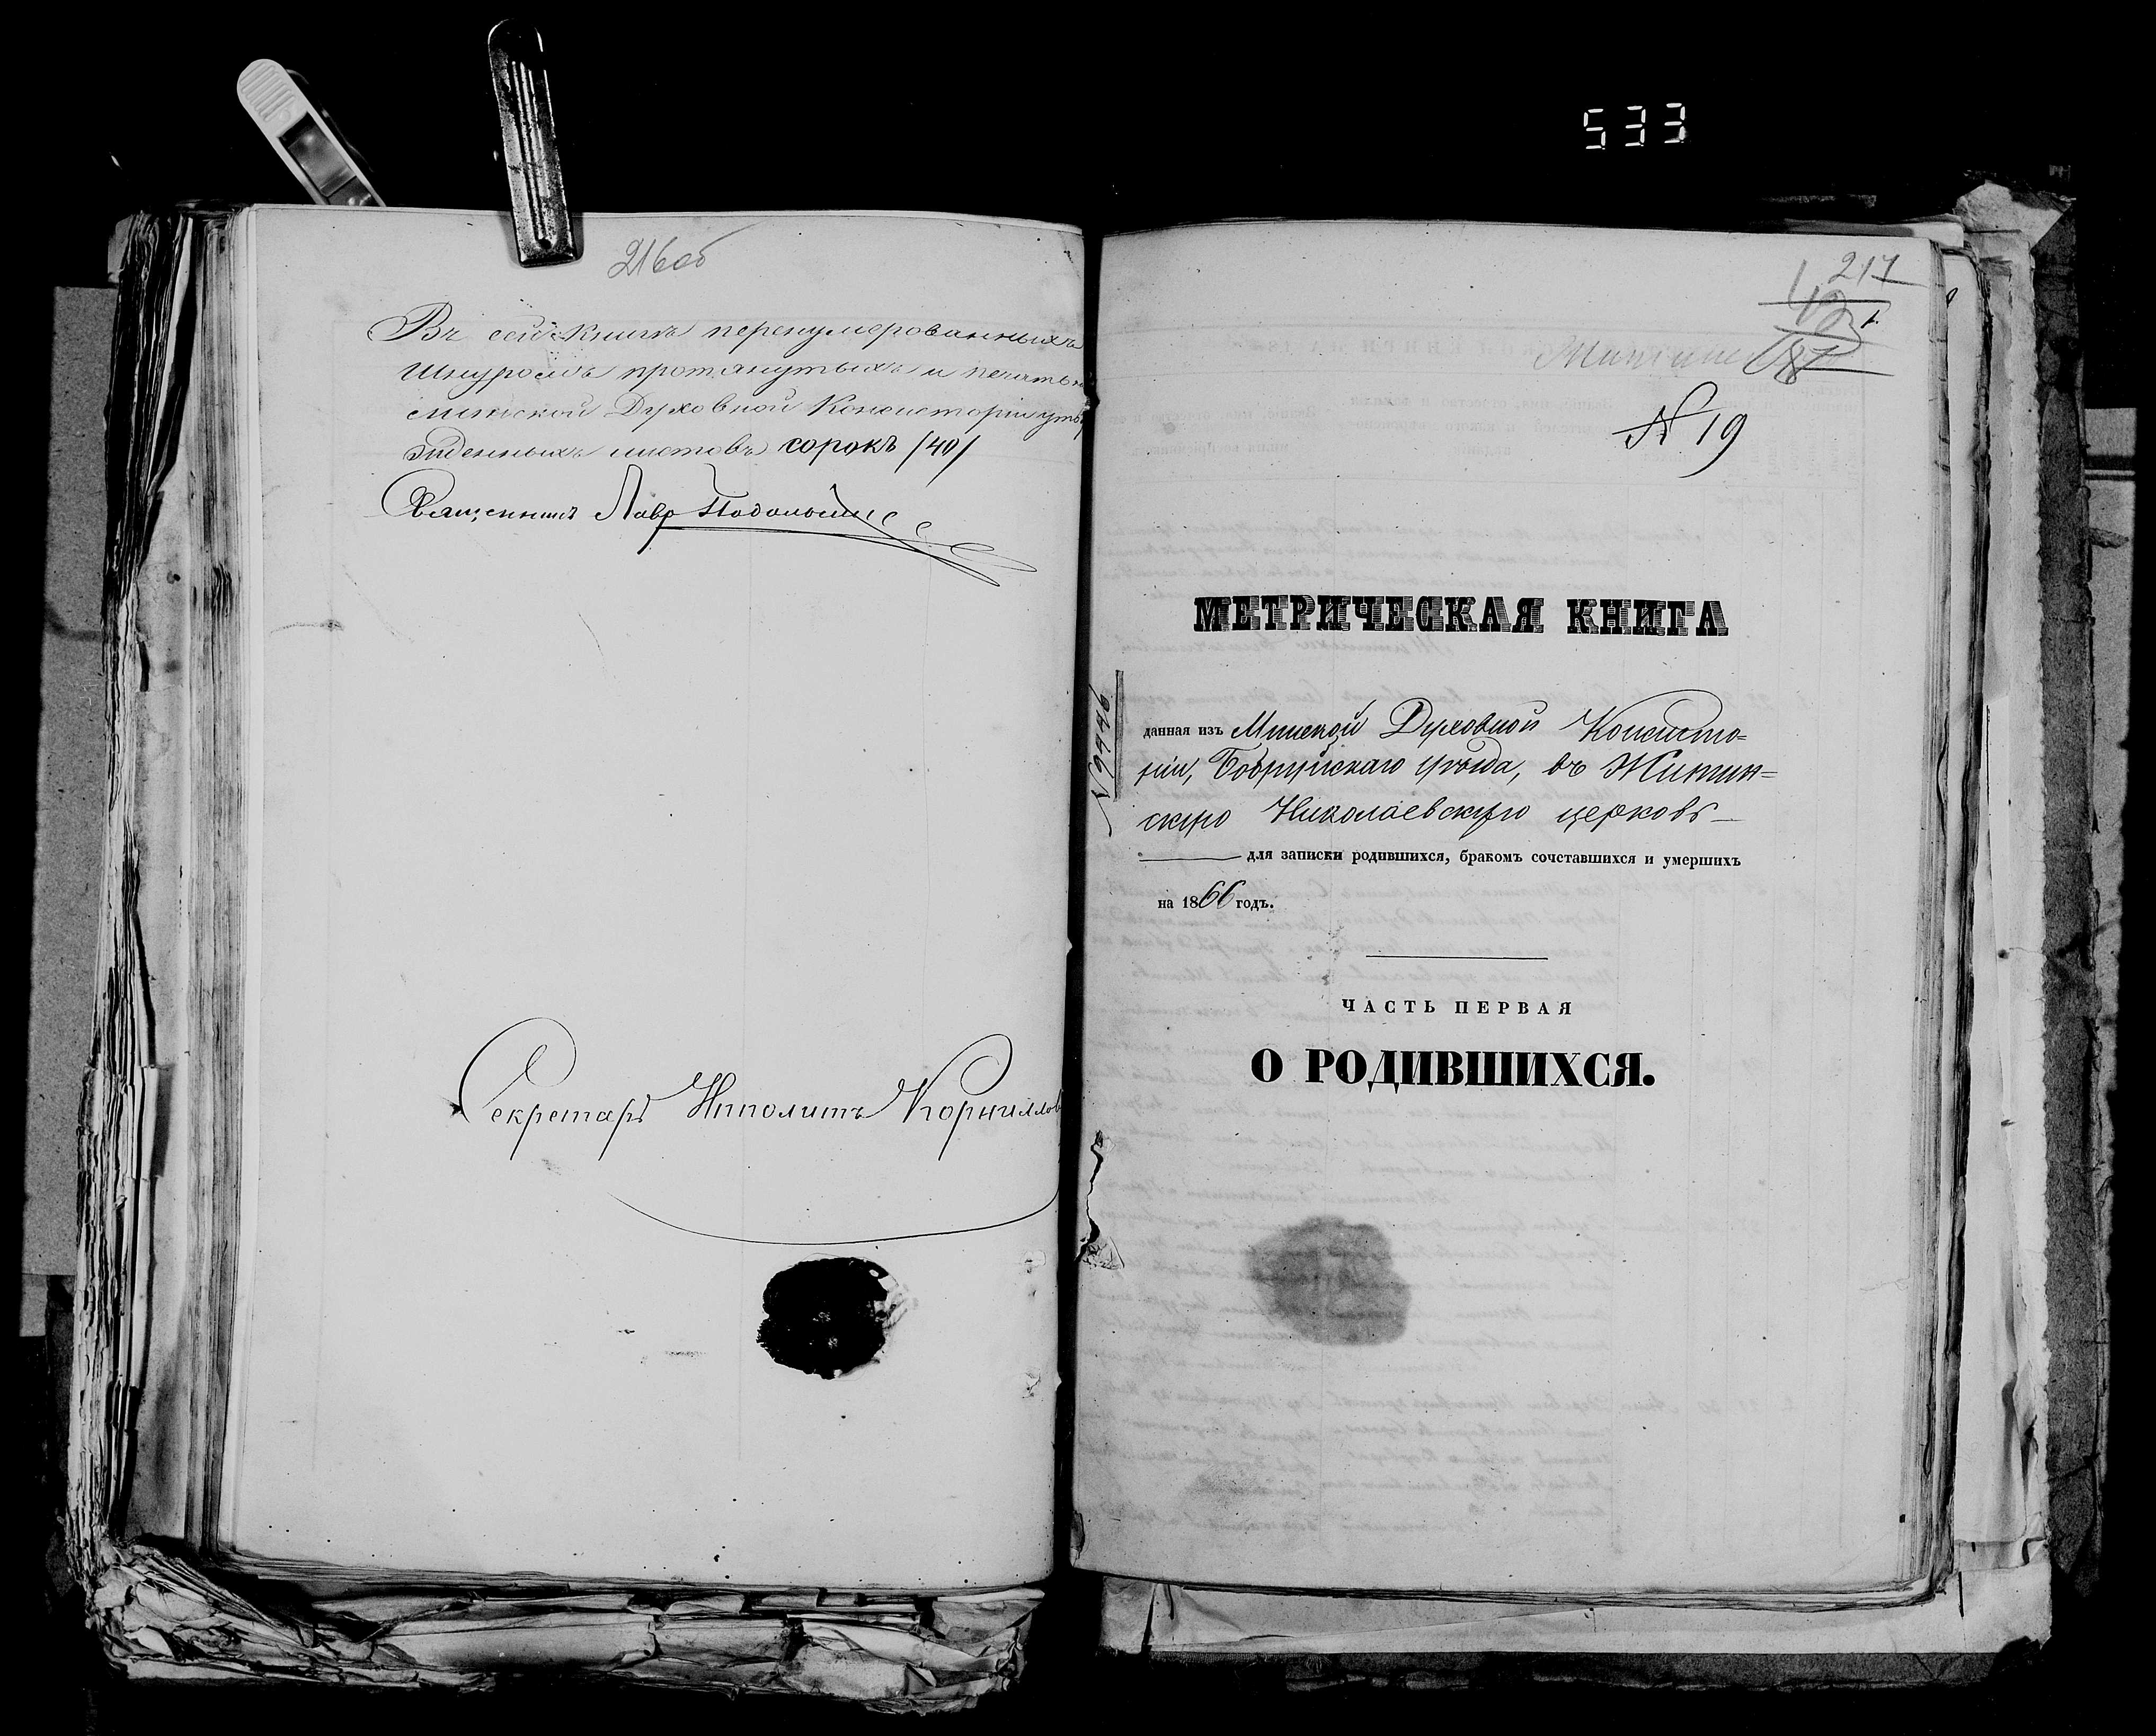 533
216об
Въ сей книгѣ перенумерованныхъ
шнуромъ протянутыхъ и печатью
минской Духовной Консисторіи утвер
жденныхъ листовъ сорокъ /40/
Священникъ Лавр
Секретарь Ипполитъ Корниллов
217
1.
№ 19
МЕТРИЧЕСКАЯ КНИГА
№ 9446
данная изъ Минской Духовной Консисто=
ріи, Бобруйскаго уѣзда, въ Житин=
скую Николаевскую церковь —
для записки родившихся, бракомъ сочетавшихся и умершихъ
на 1866 годъ.
ЧАСТЬ ПЕРВАЯ
О РОДИВШИХСЯ.